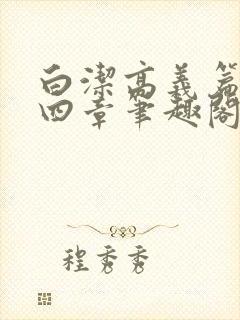 白潔高義篇
四章筆趣閣
程秀秀